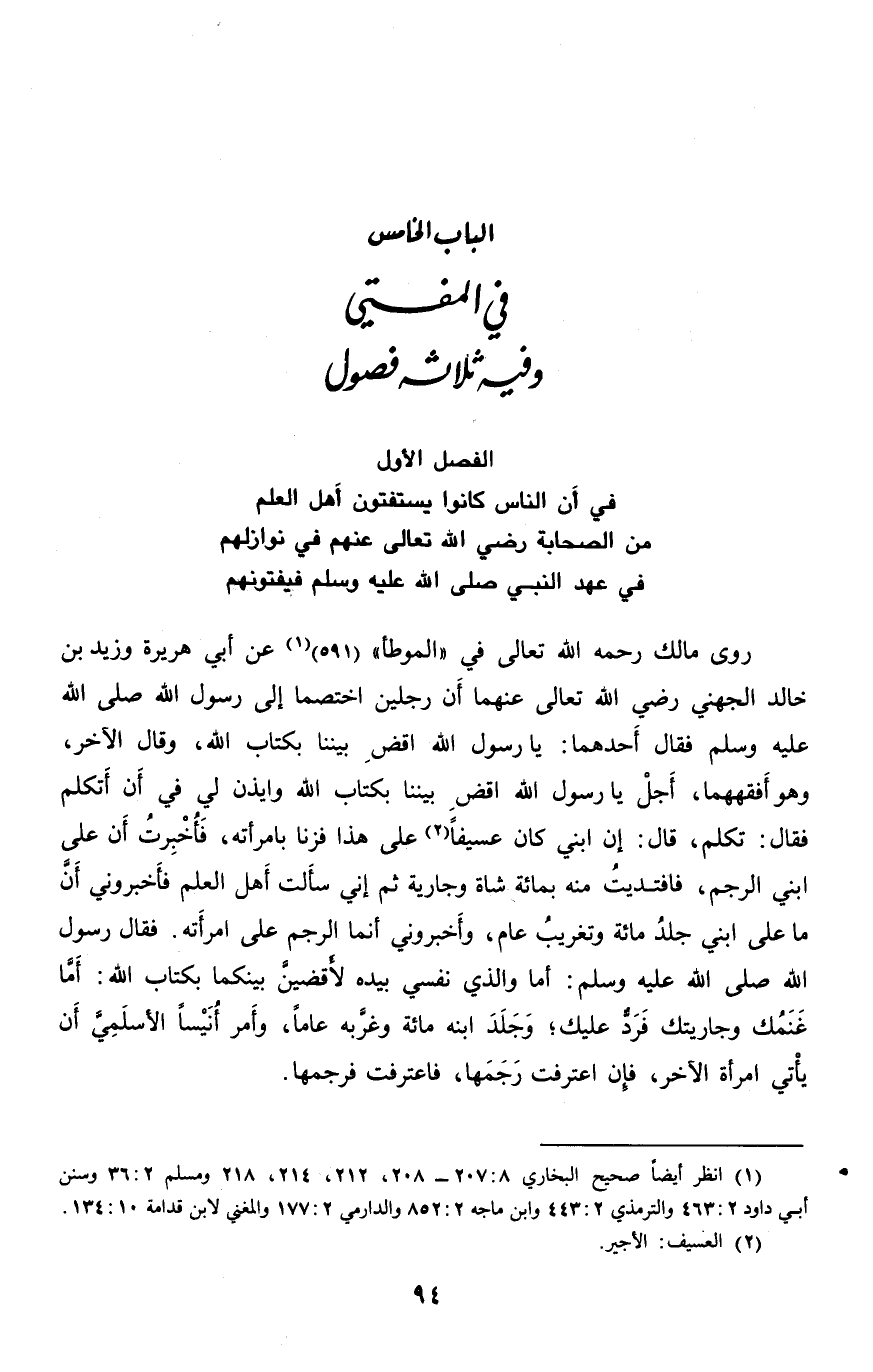 الباب الخامس
في المفتي
وفيه ثلاثة فصول
الفصل الأول
في أن الناس كانوا يستفتون أهل العلم
من الصحابة رضي الله تعالى عنهم في نوازلهم
في عهد النبي صلى الله عليه وسلم فيفتونهم
روى مالك رحمه الله تعالى في «الموطأ» (٥٩١)(١) عن أبي هريرة وزيد بن
خالد الجهني رضي الله تعالى عنهما أن رجلين اختصما إلى رسول الله صلى الله
عليه وسلم فقال أحدهما: يا رسول الله اقضِ بيننا بكتاب الله، وقال الآخر،
وهو أفقههما، أجلْ يا رسول الله اقضِ بيننا بكتاب الله وايذن لي في أن أتكلم
فقال: تكلم، قال: إن ابني كان عسيفاً(٢) على هذا فزنا بامرأته، فَأُخْبِرتُ أن على
ابني الرجم، فافتديتُ منه بمائة شاة وجارية ثم إني سألت أهل العلم فأخبروني أنَّ
ما على ابني جلدُ مائة وتغريبُ عام، وأخبروني أنما الرجم على امرأته. فقال رسول
الله صلى الله عليه وسلم: أما والذي نفسي بيده لأقضينَّ بينكما بكتاب الله: أمَّا
غَنَمُك وجاريتك فَرَدٌّ عليك؛ وَجَلَدَ ابنه مائة وغرَّبه عاماً، وأمر أُنَيْساً الأسلَمِيَّ أن
يأْتي امرأة الآخر، فإن اعترفت رَجَمَها، فاعترفت فرجمها.
(١) انظر أيضاً صحيح البخاري ٨: ٢٠٧ – ٢٠٨، ٢١٢، ٢١٤، ٢١٨ ومسلم ٢: ٣٦ وسنن
أبي داود ٢: ٤٦٣ والترمذي ٢: ٤٤٣ وابن ماجه ٢: ٨٥٢ والدارمي ٢: ١٧٧ والمغني لابن قدامة ١٠: ١٣٤.
(٢) العسيف: الأجير.
٩٤